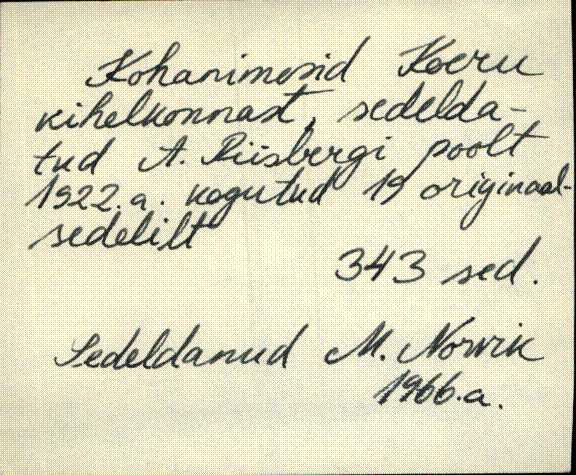 Kohanimesid Koeru
kihelkonnast, sedelda-
tud A. Riisbergi poolt
1922.a. kogutud 19 originaal-
sedelilt
343 sed.
Sedeldanud M. Norvik
1966.a.